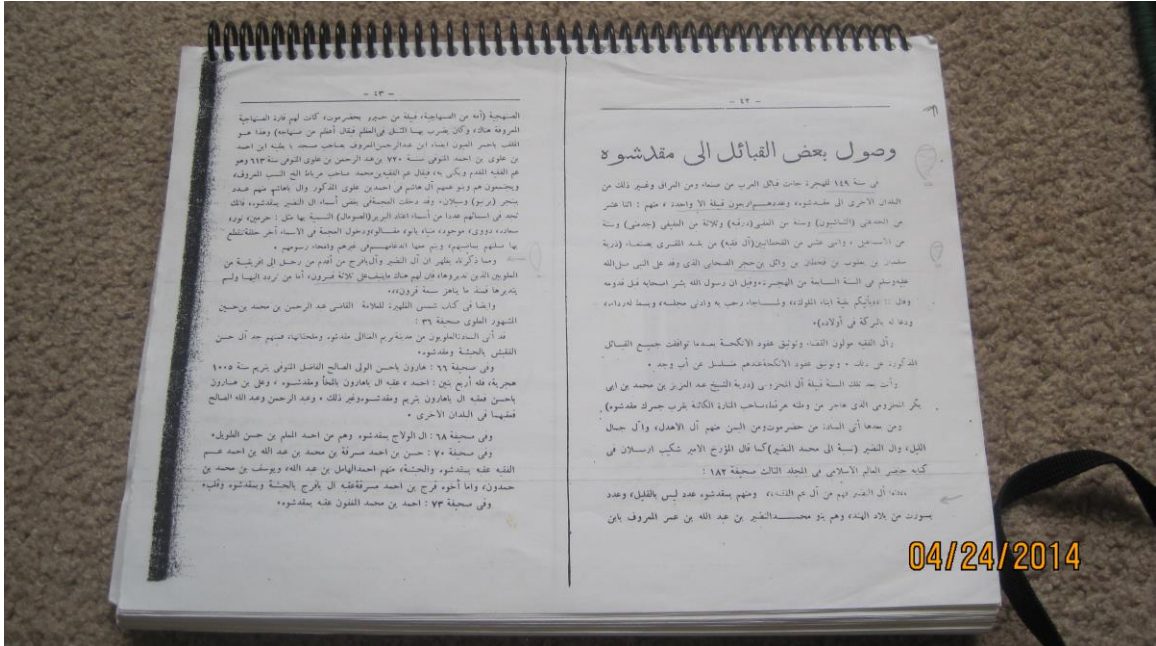 - ٤٢ -
وصول بعض القبائل الى مقدشوه
فى سنة ١٤٩ للهجرة جاءت قبائل العرب من صنعاء ومن العراق وغير ذلك من
البلدان الاخرى الى مقدشوه، وعددهم اربعون قبيلة الا واحدة، منهم : اثنا عشر
من الجدعتى (الشاشيون) وستة من العقبى (درقبة) وثلاثة من العفيفى (جدمنى) وستة
من الاسماعيل، واثنى عشر من القحطانيين (آل فقيه) من بلد المقرى بصنعاء (ذرية
بن يعقوب بن قحطان بن وائل بن حجر الصحابى الذى وفد على النبى صلى الله
عليه وسلم فى السنة السابعة من الهجرة، وقيل ان رسول الله بشر اصحابه قبل قدومه
وقال : «يأتيكم بقية ابناء الملوك» ولما جاء رحب به وادنى مجلسه، وبسط له رداءه،
ودعا له بالبركة فى أولاده)،
وآل الفقيه مولون القضاء وتوثيق عقود الانكحة بعدما توافقت جميع القبائل
المذكورة عن ذلك • وتوثيق عقود الانكحة عندهم متسلسل عن أب وجد •
وأتت بعد تلك السنة قبيلة آل المخزومى (ذرية الشيخ عبد العزيز بن محمد بن ابى
بكر المخزومى الذى هاجر من وطنه صاحب المنارة الكائنة بقرب جمرك مقدشوه)
ومن بعدها أتى السادة من حضرموت ومن اليمن منهم آل الاهدل، وآل جمال
الليل، وال النضير (نسبة الى محمد النضير) كما قال المؤرخ الامير شكيب ارسلان فى
كتابه حاضر العالم الاسلامى فى المجلد الثالث صحيفة ١٨٢ :
آل النضير فهم من آل عم الفقيه، ومنهم بمقدشوه عدد ليس بالقليل، وعدد
بسورت من بلاد الهند، وهم بنو محمد النضير بن عبد الله بن عمر المعروف بابن
- ٤٣ -
الصنهجية (أمه من الصنهاجية، قبيلة من حمير بحضرموت، كانت لهم قارة الصنهاجية
المعروفة هناك، وكان يضرب بها المثل فى العظم فيقال أعظم من صنهاجه) وهذا هو
الملقب باحمر العيون ايضاء ابن عبد الرحمن المعروف بصاحب مسجد با بطينه ابن احمد
بن علوى بن احمد المتوفى سنة ٧٢٠ بن عبد الرحمن بن علوى المتوفى سنة ٦١٣ وهو
عم الفقيه المقدم ويكنى به، فيقال عم الفقيه بن محمد صاحب مرباط الخ النسب المعروف،
ويجتمعون هم وبنو عمهم آل هاشم فى احمد بن علوى المذكور وال باهاشم منهم عدد
بنيجر (بربو) وسيلان، وقد دخلت العجمة فى بعض أسماء ال النضير بمقدشوه، فانك
تجد فى اسمائهم عددا من أسماء اهناد البربر (الصومال) النسبية بها مثل : حرمين، نور،
سعاده، دووى، موجود، مياء، بانو، ودخول العجمة فى الاسماء آخر حلقة تنقطع
بها سلتهم بماضيهم، ويتم معها اندغامهم فى غيرهم وامحاء رسومهم •
ومما ذكرناه يظهر ان آل النضير وآل بافرج من أقدم من رحل الى افريقية من
العلويين الذين تديروها، فإن لهم هناك ما ينيف على ثلاثة قرون، أما من تردد اليها ولم
يتديرها فمنذ ما يناهز سبعة قرون»،
وايضا فى كتاب شمس الظهيرة للعلامة القاضى عبد الرحمن بن محمد بن حسين
المشهور العلوى صحيفة ٣٦ :
قد أتى السادة العلويون من مدينة تريم الغنا الى مقدشوه وملحقاتها، فمنهم جد آل حسن
القليش بالحبشة ومقدشوه،
وفى صحيفة ٦٦ : هارون باحسن الولى الصالح الفاضل المتوفى بتريم سنة ١٠٠٥
هجرية، فله أربع بنين : احمد، عقبه ال باهارون باللخأ ومقدشوه، وعلى بن هارون
باحسن فعقبه ال باهارون بتريم ومقدشوه وغير ذلك • وعبد الرحمن وعبد الله الصالح
فعقبهما فى البلدان الاخرى •
وفى صحيفة ٦٨ : ال الولاج بمقدشوه وهم من احمد المعلم بن حسن الطويل،
وفى صحيفة ٧٠ : حسن بن احمد صرفة بن محمد بن عبد الله بن احمد عم
الفقيه عقبه بمقدشوه والحبشة، منهم احمد الهامل بن عبد الله، ويوسف بن محمد بن
حمدون، واما أخوه فرج بن احمد صرفة فعقبه ال بافرج بالحبشة وبمقدشوه وقلب،
وفى صحيفة ٧٣ : احمد بن محمد النفون عقبه بمقدشوه،
04/24/2014